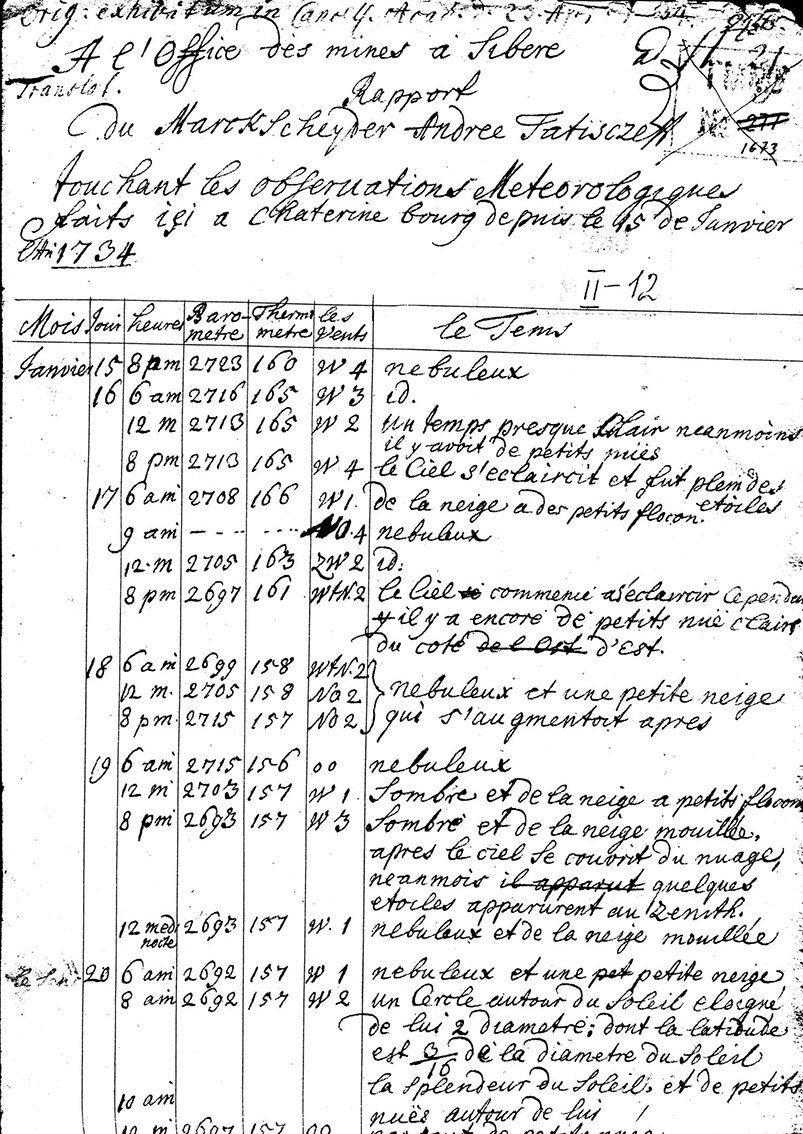 Orig: exhibitum in Conv. Acad. d. 23. Apr. 1734.
A l'Office des mines a Sibere
Translat.
Rapport
du Marckscheyder Andree Tatisczeff
1673
touchant les observations Meteorologiques
faits içi a Chaterine bourg depuis le 15 de Janvier
l'An 1734
II-12
Mois Jour heures Baro-metre Thermometre les Vents le Tems
Janvier 15 8 pm 2723 160 W 4 nebuleux
16 6 am 2716 165 W 3 id.
12 m 2713 165 W 2 un temps presque Clair neanmoins
il y avoit de petits nuës
8 pm 2713 165 W 4 le Ciel s'eclaircit et fut plein des
etoiles
17 6 am 2708 166 W 1. de la neige a des petits flocon.
9 am - - - - - - - NO. 4 nebuleux
12. m 2705 163 ZW 2 id:
8 pm 2697 161 WtN. 2 le Ciel commencé a s'éclaircir cependant
il y a encore de petits nuë claire
du coté de l Ost d'Est.
18 6 am 2699 158 WtN. 2
12 m. 2705 158 NO 2 nebuleux et une petite neige
8 pm. 2715 157 NO 2 qui s'augmentoit apres
19 6 am 2715 156 00 nebuleux
12 m 2703 157 W 1 Sombre et de la neige a petits flocons
8 pm 2693 157 W 3 Sombre et de la neige mouillée,
apres le ciel se couvrit du nuage,
neanmois il apparut quelques
etoiles apparurent au Zenith.
12 med. nocte 2693 157 W. 1 nebuleux et de la neige mouillée
20 6 am 2692 157 W 1 nebuleux et une pet petite neige
8 am 2692 157 W 2 un Cercle autour du Soleil eloigné
de lui 2 diametre; dont la latitude
est 3/16 de la diametre du Soleil
la splendeur du Soleil. et de petits
10 am
nuës autour de lui
12 m 2697 157 00